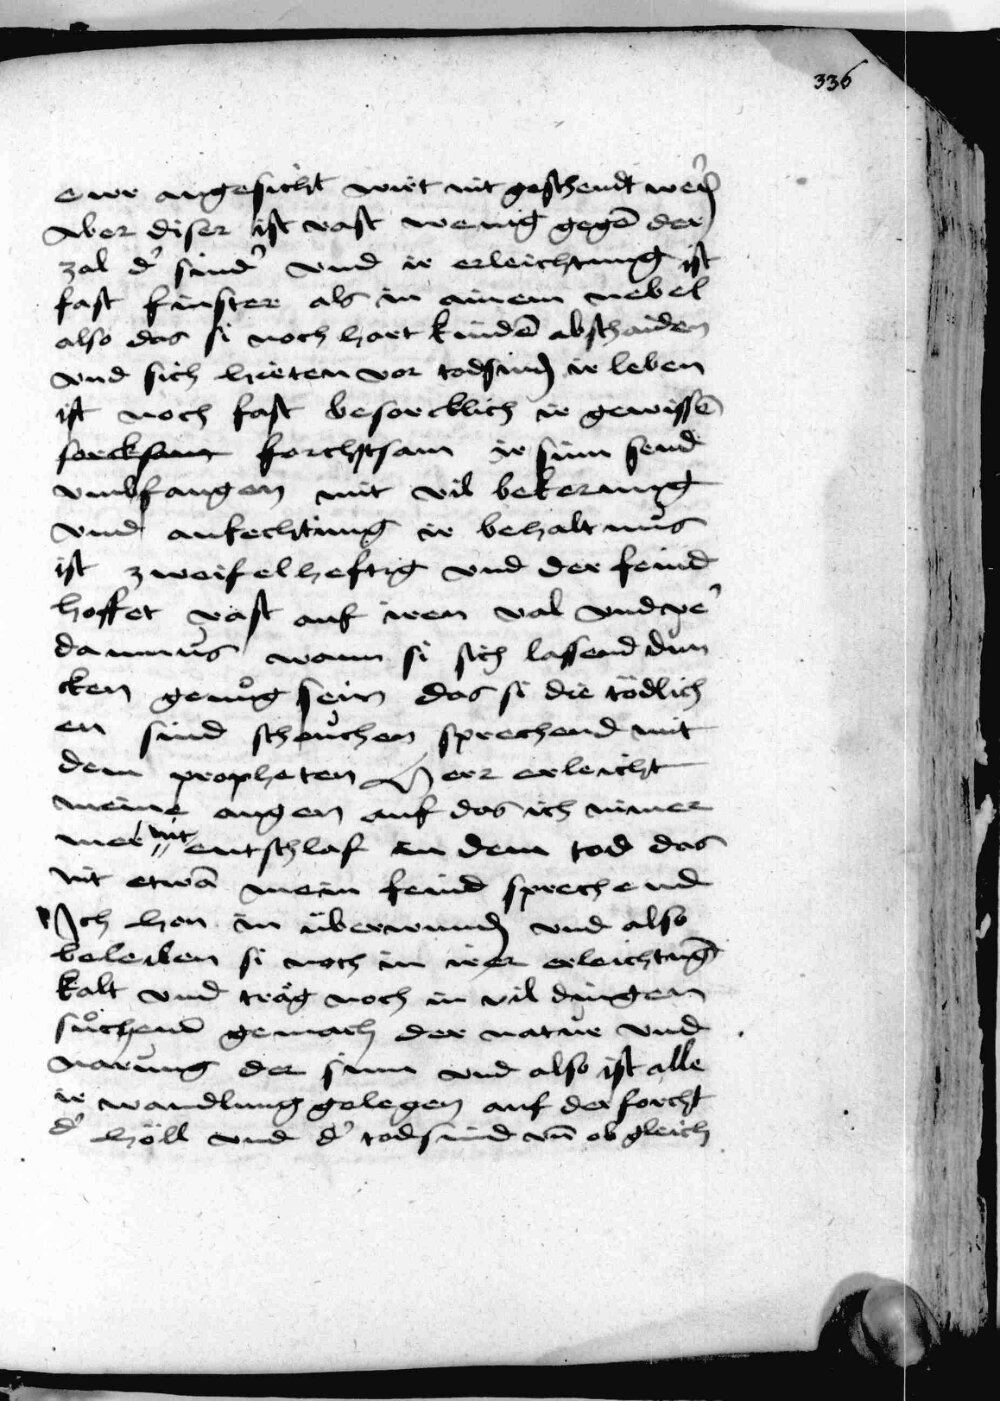 336
ewr angesicht wirt nit geschendt werd
Aber diser ist vast wenig gegē der
zal d' sind' vnd ir erleichtung ist
fast finster als in ainem nebel
also das si noch hart kindē abschaiden
vnd sich hieten vor todsind ir leben
ist noch fast besorcklich ir gewissē
sorcksam forchtsam ir sinn send
vmbfangen mit vil bekerung
vnd anfechtung ir behaltnus
ist zweifelheftig vnd der feind
hoffet vast auf iren val vnd ve'
damnus wann si sich lassend dun
cken genůg sein das si die tödlich
en sind scheuchen sprechend mit
dem propheten Herr erleicht
meine augen auf das ich nimer
mer nit entschlaf in dem tod das
nit etwā mein feind sprechend
Ich hon in überwund vnd also
beleiben si noch in irer erleichtug
kalt vnd träg noch in vil dingen
sůchend gemach der natur vnd
narung der sinn vnd also ist alle
ir wandlung gelegen auf der forcht
d' höll vnd d' todsind vn̄ ob gleich